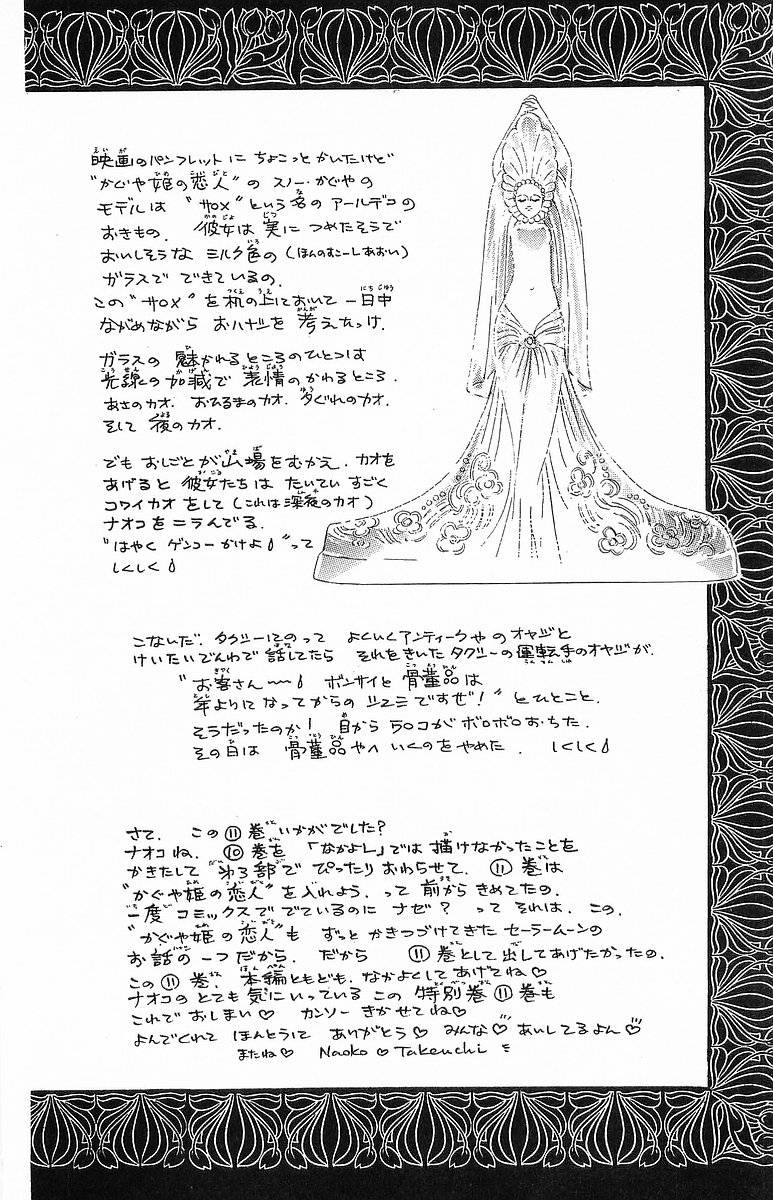 映画のパンフレットに ちょこっとかいたけど
"かぐや姫の恋人" の スノー・かぐやの
モデルは "サロメ" という名の アールデコの
おきもの. 彼女は実に つめたそうで
おいしそうな ミルク色の (ほんのすこーしあおい)
ガラスで できているの.
この "サロメ" を 机の上において 一日中
ながめながら おハナシを 考えたっけ.
ガラスの 魅かれるところのひとつは
光線の加減で 表情のかわるところ.
あさのカオ. おひるまのカオ. 夕ぐれのカオ.
そして 夜のカオ.
でも おしごとが山場をむかえ. カオを
あげると 彼女たちは たいてい すごく
コワイカオをして (これは深夜のカオ)
ナオコをニランでる.
"はやく ゲンコーかけよ" って
しくしく
こないだ. タクシーにのって よくいくアンティークやのオヤジと
けいたいでんわで 話してたら それをきいたタクシーの運転手のオヤジが.
"お客さん〜 ボンサイと骨董品は
年よりになってからの シュミですぜ!" とひとこと.
そうだったのか! 目から ウロコがボロボロおちた.
その日は 骨董品やへ いくのをやめた. しくしく
さて. この⑪巻 いかがでした?
ナオコね. ⑩巻を 「なかよし」では 描けなかったことを
かきたして "第3部" で ぴったり おわらせて. ⑪巻は
"かぐや姫の恋人" を入れよう. って 前から きめてたの.
一度 コミックスで でているのに ナゼ? って それは. この.
"かぐや姫の恋人" も ずっと かきつづけてきた セーラームーンの
お話の一つだから. だから ⑪巻として出してあげたかったの.
この⑪巻. 本編ともども. なかよくしてあげてね♡
ナオコの とても気にいっている この 特別巻⑪巻も
これで おしまい♡ カンソー きかせてね♡
よんでくれて ほんとうに ありがとう♡ みんな♡ あいしてるよん♡
またね♡ Naoko♡Takeuchi